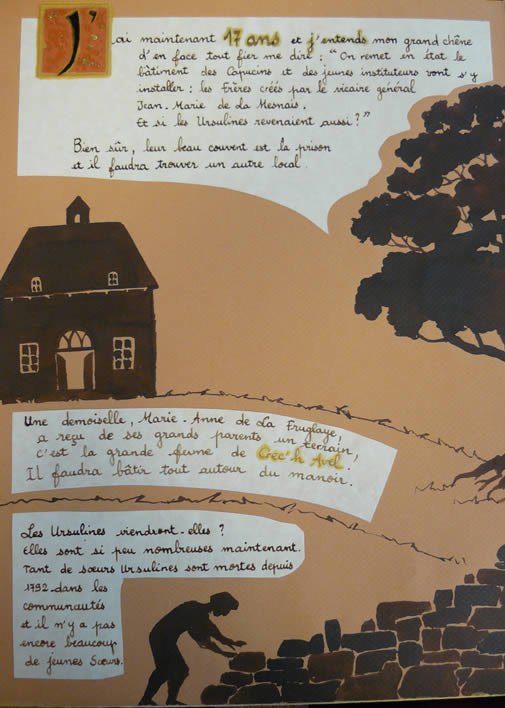 J'ai maintenant 17 ans et j'entends mon grand chêne
d'en face tout fier me dire : "On remet en état le
bâtiment des Capucins et des jeunes instituteurs vont s'y
installer : les Frères créés par le vicaire général
Jean-Marie de la Mesnais.
Et si les Ursulines revenaient aussi ?"
Bien sûr, leur beau couvent est la prison
et il faudra trouver un autre local.
Une demoiselle, Marie-Anne de La Fruglaye,
a reçu de ses grands parents un terrain,
c'est la grande ferme de Crec'h Avel.
Il faudra bâtir tout autour du manoir.
Les Ursulines viendront-elles ?
Elles sont si peu nombreuses maintenant.
Tant de sœurs Ursulines sont mortes depuis
1792 dans les
communautés
et il n'y a pas
encore beaucoup
de jeunes Sœurs.